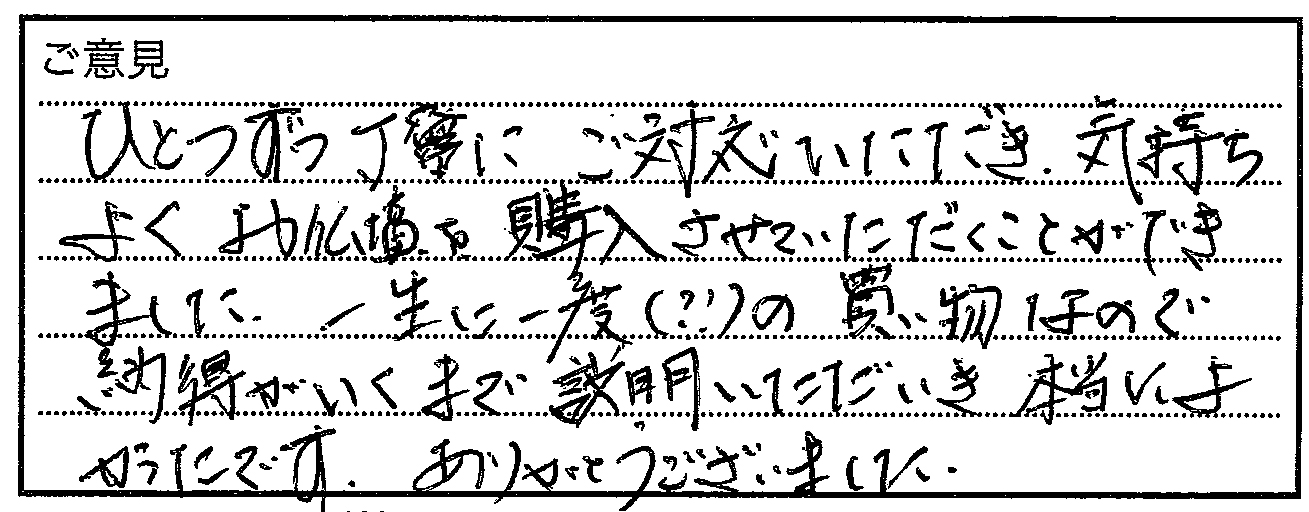 ご意見
ひとつずつ丁寧にご対応いただき、気持ち
よくお仏壇を購入させていただくことができ
ました。一生に一度(??)の買い物なので
納得がいくまで説明いただいき本当によ
かったです。ありがとうございました。